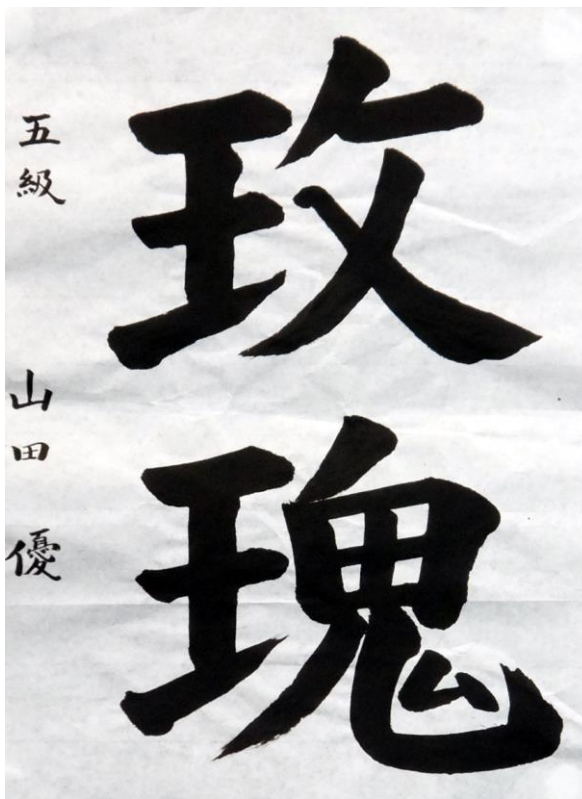 玫瑰
五級 山田 優